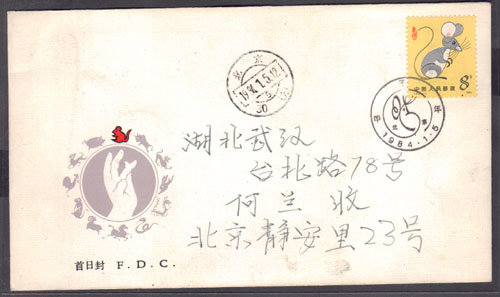 中国人民邮政
8分
北京
1984.1.5.12
甲子年
北京
1984.1.5
湖北武汉
台北路78号
何兰 收
北京静安里23号
首日封 F.D.C.